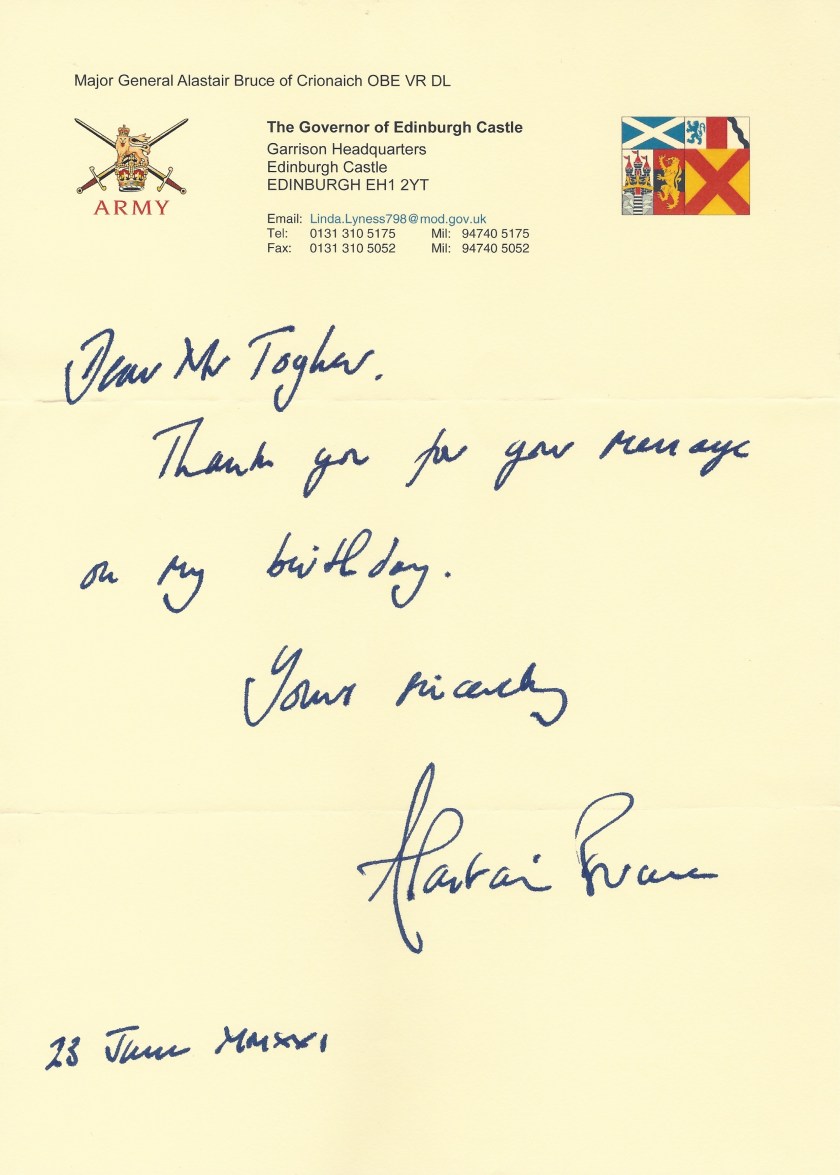 Major General Alastair Bruce of Crionaich OBE VR DL
The Governor of Edinburgh Castle
Garrison Headquarters
Edinburgh Castle
EDINBURGH EH1 2YT
ARMY
Email: Linda.Lyness798@mod.gov.uk
Tel: 0131 310 5175 Mil: 94740 5175
Fax: 0131 310 5052 Mil: 94740 5052
Dear Mr Togher.
Thank you for your message
on my birthday.
Yours sincerely
Alastair Bruce
23 June MMXXI